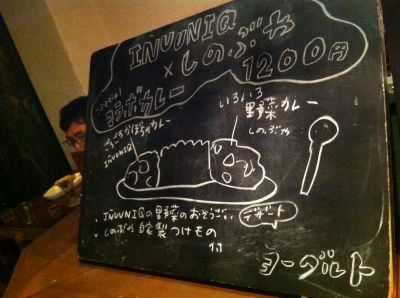 INUUNIQ
× しのぶや
1200円
special
ヨシボカレー
ごろごろかぼちゃカレー
INUUNIQ
いろいろ
野菜カレー
しのぶや
・INUUNIQの野菜のおそうざい
・しのぶや自家製つけもの
付
デザート
ヨーグルト